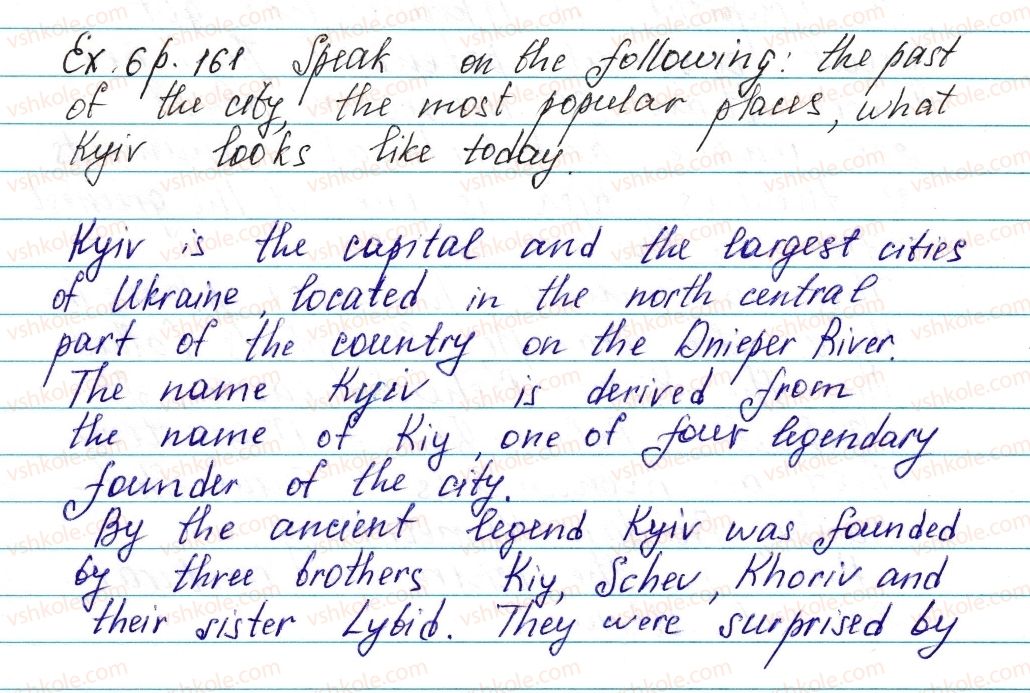 Ex. 6 p. 161 Speak on the following: the past
of the city, the most popular places, what
Kyiv looks like today.
Kyiv is the capital and the largest cities
of Ukraine, located in the north central
part of the country on the Dnieper River.
The name Kyiv is derived from
the name of Kiy, one of four legendary
founder of the city.
By the ancient legend Kyiv was founded
by three brothers Kiy, Schev, Khoriv and
their sister Lybid. They were surprised by